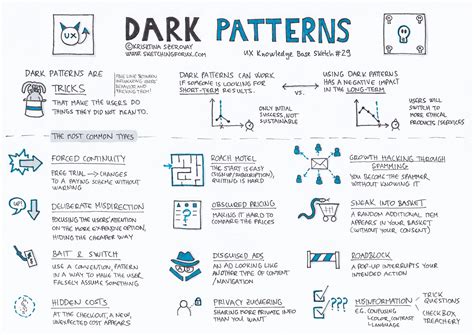 UX
DARK PATTERNS
©KRISZTINA SZEROVAY
WWW.SKETCHINGFORUX.COM
UX KNOWLEDGE BASE SKETCH #29
DARK PATTERNS ARE
TRICKS
THAT MAKE THE USERS DO
THINGS THEY DID NOT MEAN TO.
FINE LINE BETWEEN
INFLUENCING USER
BEHAVIOR AND
TRICKING THEM!
DARK PATTERNS CAN WORK
IF SOMEONE IS LOOKING FOR
SHORT-TERM RESULTS.
ONLY INITIAL
SUCCESS, NOT
SUSTAINABLE
VS.
USING DARK PATTERNS
HAS A NEGATIVE IMPACT
IN THE LONG-TERM
USERS WILL
SWITCH TO
MORE ETHICAL
PRODUCTS/SERVICES
THE MOST COMMON TYPES
FORCED CONTINUITY
FREE TRIAL → CHANGES TO
A PAYING SCHEME WITHOUT
WARNING
ROACH MOTEL
THE START IS EASY
(SIGNUP/SUBSCRIPTION),
QUITTING IS HARD
GROWTH HACKING THROUGH
SPAMMING
YOU BECOME THE SPAMMER
WITHOUT KNOWING IT
UP!
DELIBERATE MISDIRECTION
FOCUSING THE USERS' ATTENTION
ON THE MORE EXPENSIVE OPTION,
HIDING THE CHEAPER WAY
OBSCURED PRICING
MAKING IT HARD TO
COMPARE THE PRICES
SNEAK INTO BASKET
A RANDOM ADDITIONAL ITEM
APPEARS IN YOUR BASKET
(WITHOUT YOUR CONSENT)
BAIT & SWITCH
USE A CONVENTION, PATTERN
IN A WAY TO MAKE THE USER
FALSELY ASSUME SOMETHING
DISGUISED ADS
AN AD LOOKING LIKE
ANOTHER TYPE OF CONTENT /
NAVIGATION
ROADBLOCK
A POP-UP INTERRUPTS YOUR
INTENDED ACTION
$
HIDDEN COSTS
AT THE CHECKOUT, A NEW,
UNEXPECTED COST APPEARS
PRIVACY ZUCKERING
SHARING MORE PRIVATE INFO
THAN YOU WANT
???
MISINFORMATION
E.G. CONFUSING
COLOR, CONTRAST
LANGUAGE
TRICK
QUESTIONS
CHECK BOX
TREACHERY